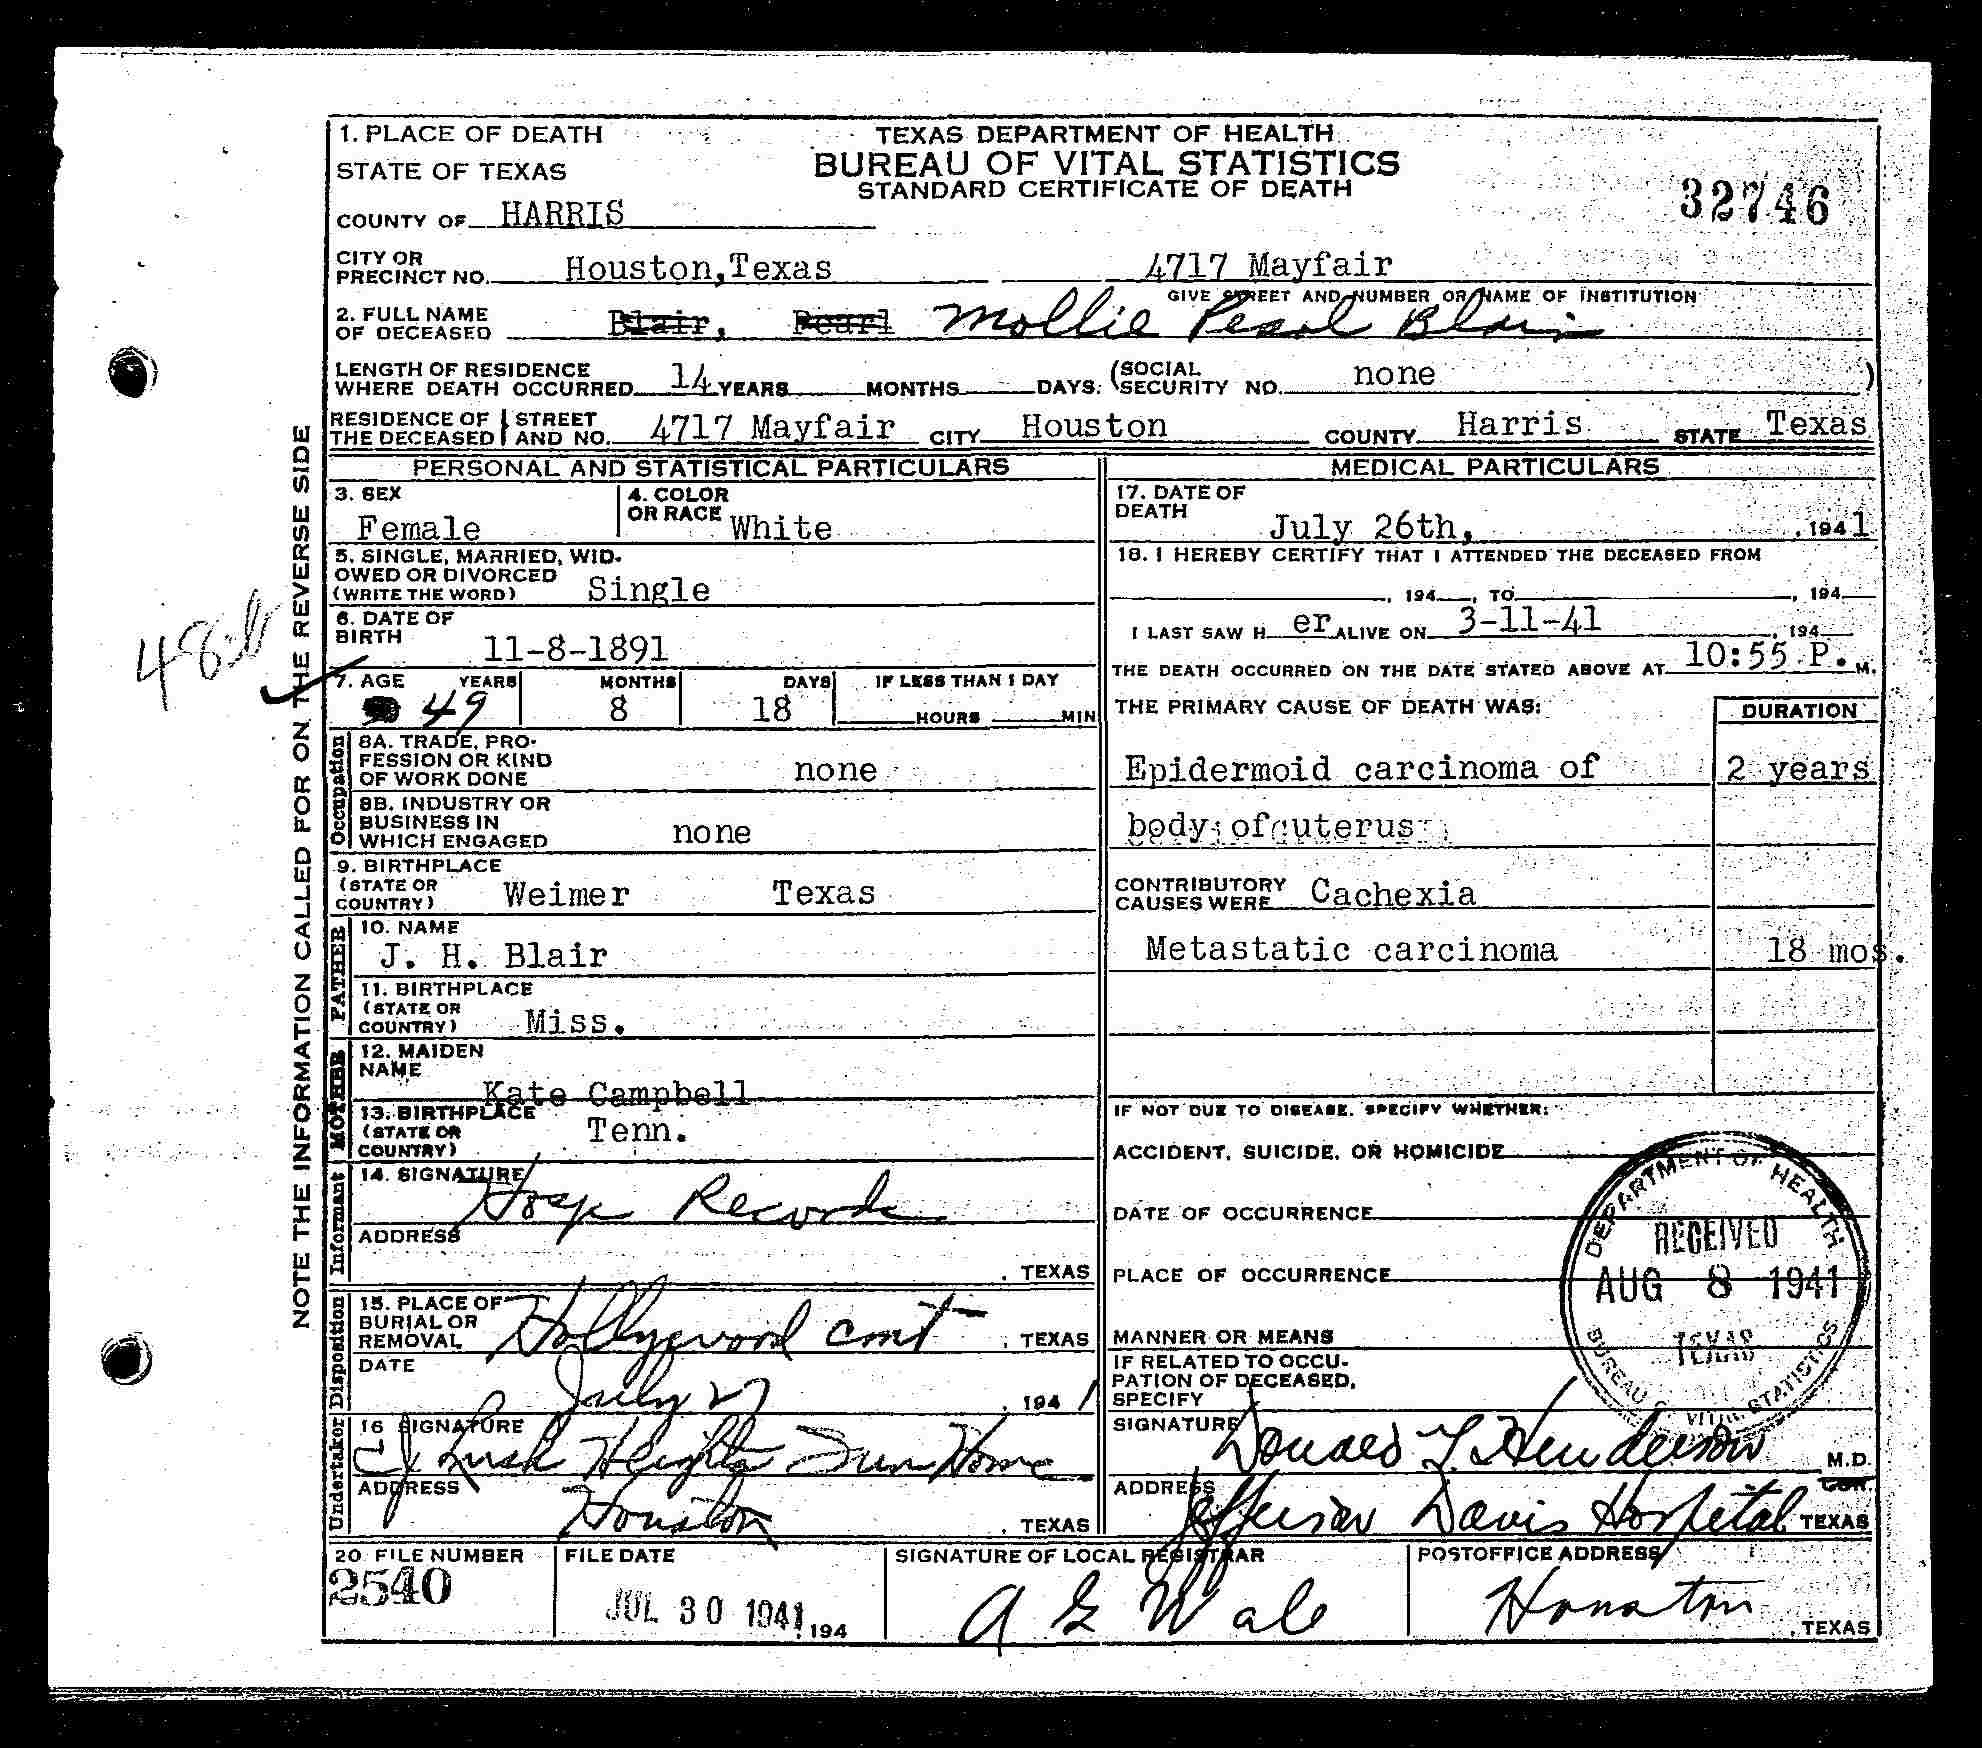 1. PLACE OF DEATH
STATE OF TEXAS
TEXAS DEPARTMENT OF HEALTH
BUREAU OF VITAL STATISTICS
STANDARD CERTIFICATE OF DEATH
32746
COUNTY OF HARRIS
CITY OR PRECINCT NO. Houston,Texas 4717 Mayfair
GIVE STREET AND NUMBER OR NAME OF INSTITUTION
2. FULL NAME OF DECEASED Blair, Pearl Mollie Pearl Blair
LENGTH OF RESIDENCE WHERE DEATH OCCURRED 14 YEARS MONTHS DAYS. (SOCIAL SECURITY NO. none )
RESIDENCE OF THE DECEASED STREET AND NO. 4717 Mayfair CITY Houston COUNTY Harris STATE Texas
NOTE THE INFORMATION CALLED FOR ON THE REVERSE SIDE
PERSONAL AND STATISTICAL PARTICULARS
3. SEX Female
4. COLOR OR RACE White
5. SINGLE, MARRIED, WIDOWED OR DIVORCED (WRITE THE WORD) Single
6. DATE OF BIRTH 11-8-1891
7. AGE YEARS MONTHS DAYS IF LESS THAN 1 DAY
49 8 18 HOURS MIN
Occupation
8A. TRADE, PROFESSION OR KIND OF WORK DONE none
8B. INDUSTRY OR BUSINESS IN WHICH ENGAGED none
9. BIRTHPLACE (STATE OR COUNTRY) Weimer Texas
FATHER
10. NAME
J. H. Blair
11. BIRTHPLACE (STATE OR COUNTRY) Miss.
MOTHER
12. MAIDEN NAME
Kate Campbell
13. BIRTHPLACE (STATE OR COUNTRY) Tenn.
Informant
14. SIGNATURE Hosp Records
ADDRESS
, TEXAS
Disposition
15. PLACE OF BURIAL OR REMOVAL Hollywood Cmt , TEXAS
DATE July 27 , 1941
Undertaker
16 SIGNATURE
Heights Fun Home
ADDRESS Houston , TEXAS
MEDICAL PARTICULARS
17. DATE OF DEATH July 26th, , 1941
18. I HEREBY CERTIFY THAT I ATTENDED THE DECEASED FROM
, 194 , TO , 194
I LAST SAW H er ALIVE ON 3-11-41 , 194
THE DEATH OCCURRED ON THE DATE STATED ABOVE AT 10:55 P. M.
THE PRIMARY CAUSE OF DEATH WAS: DURATION
Epidermoid carcinoma of 2 years
body of uterus
CONTRIBUTORY CAUSES WERE Cachexia
Metastatic carcinoma 18 mos.
IF NOT DUE TO DISEASE, SPECIFY WHETHER:
ACCIDENT, SUICIDE, OR HOMICIDE
DATE OF OCCURRENCE
PLACE OF OCCURRENCE
MANNER OR MEANS
IF RELATED TO OCCUPATION OF DECEASED, SPECIFY
DEPARTMENT OF HEALTH
RECEIVED
AUG 8 1941
TEXAS
BUREAU OF VITAL STATISTICS
SIGNATURE Donald L. Henderson M.D.
ADDRESS Jefferson Davis Hospital TEXAS
20 FILE NUMBER
2540
FILE DATE
JUL 30 1941 , 194
SIGNATURE OF LOCAL REGISTRAR
POSTOFFICE ADDRESS
Houston , TEXAS